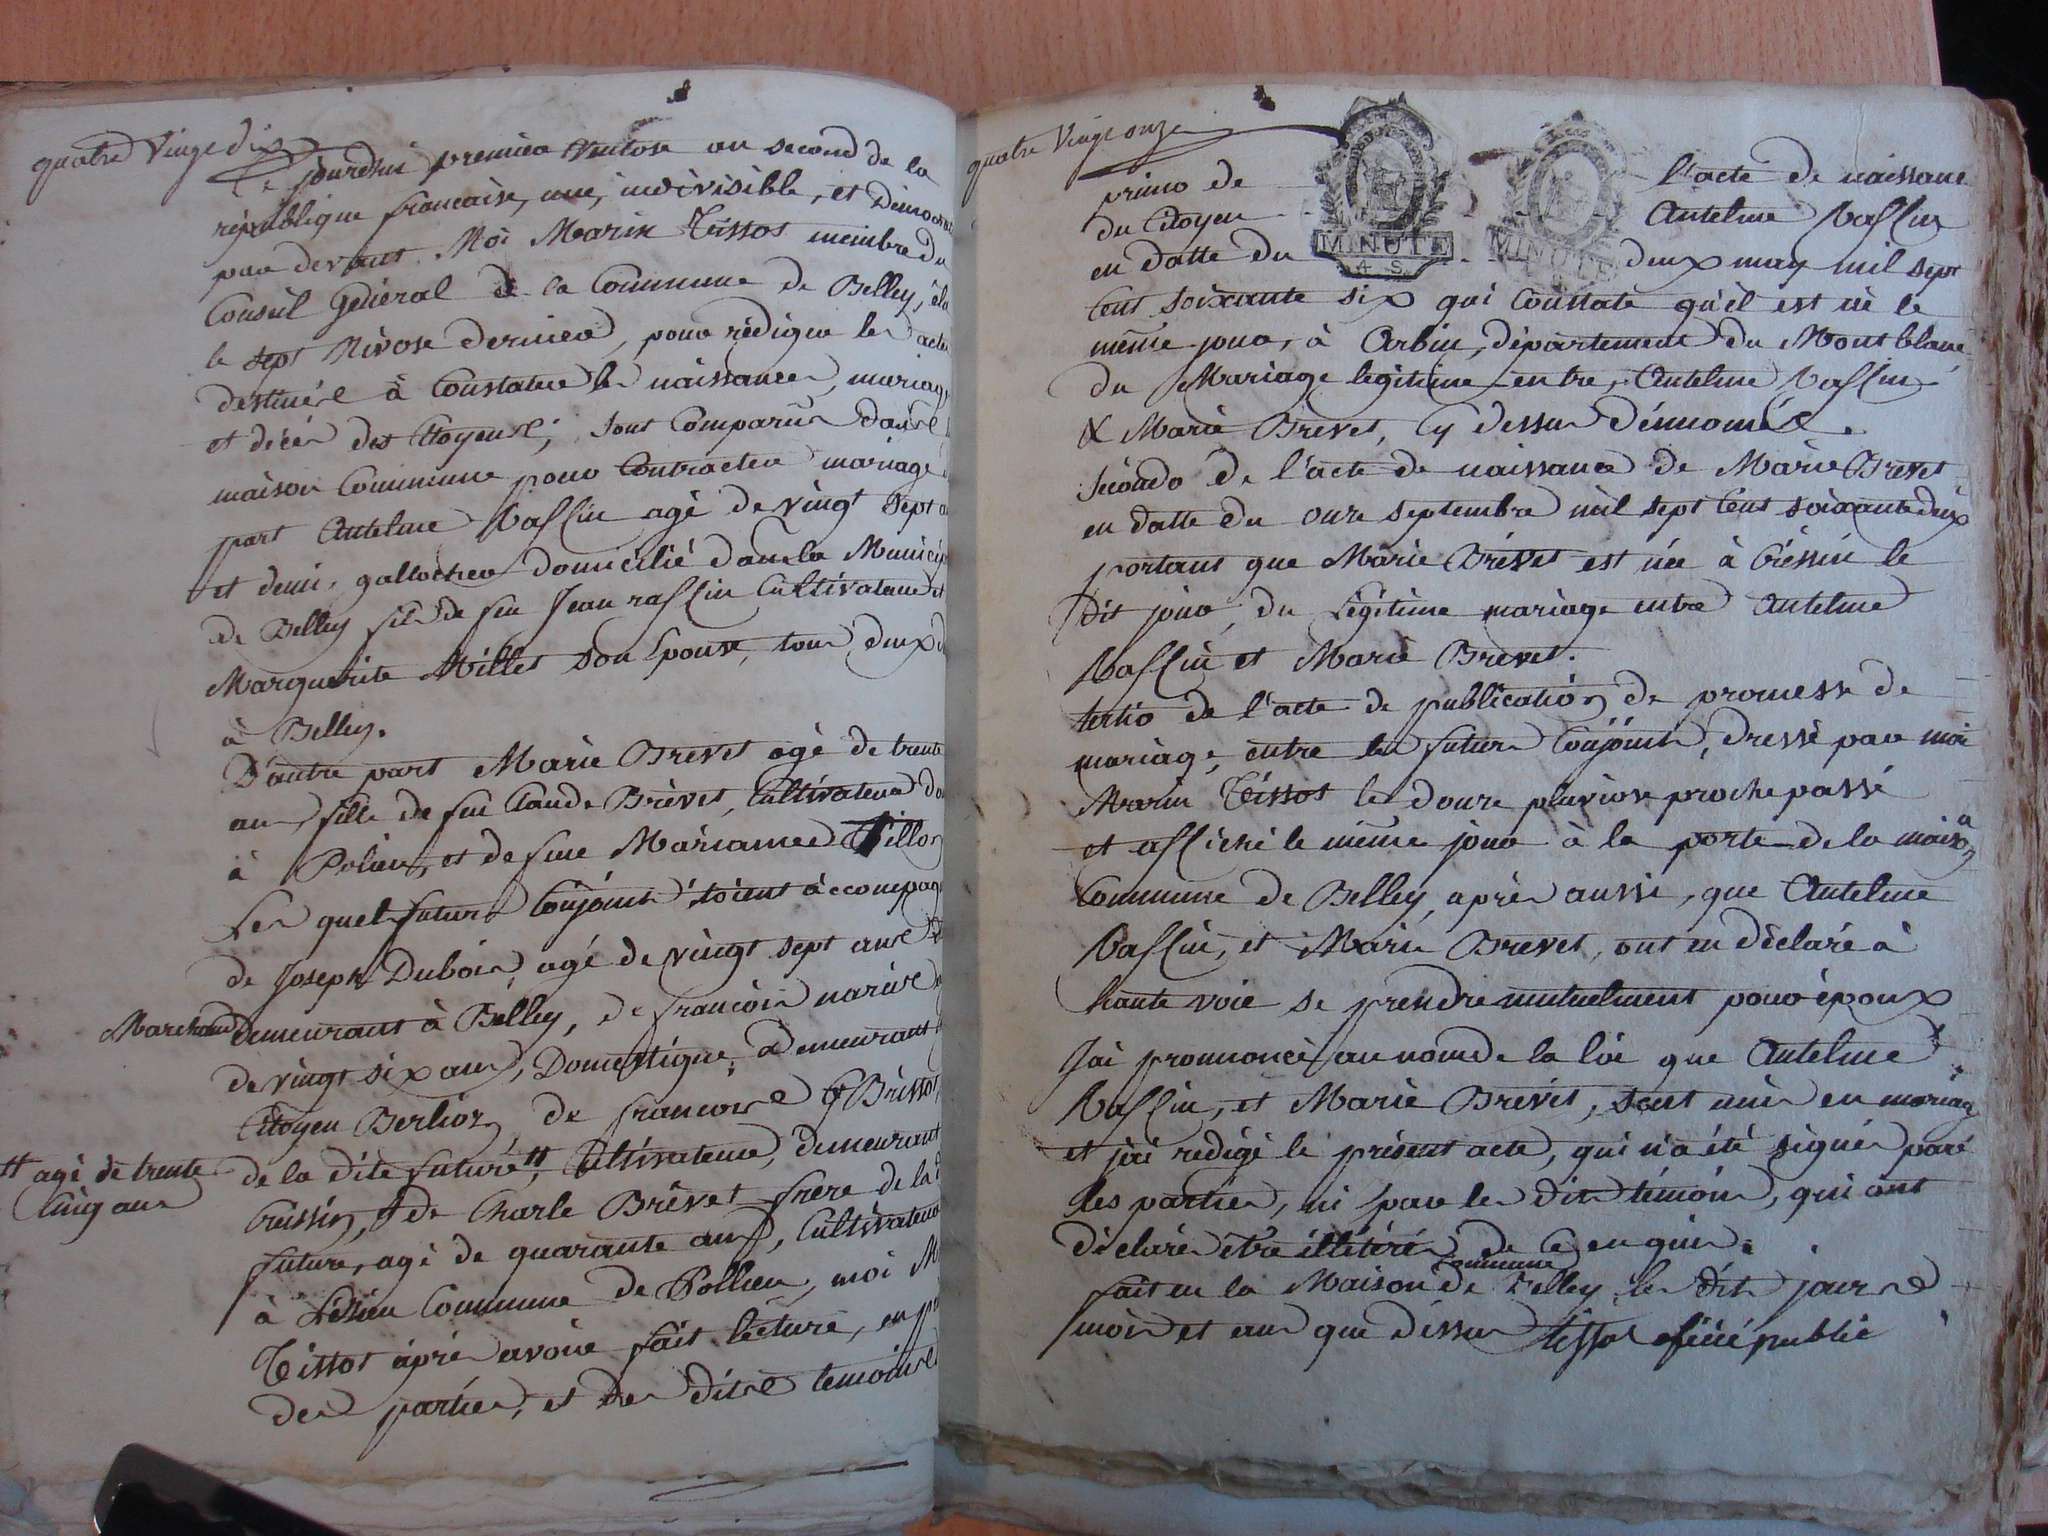 quatre Vingt dix
Ce jourdhui premier Ventose an second de la
république francaise, une, indivisible, et Démocra
par devant Moi Marin Tissot membre du
Conseil Général de la Commune de Belley, élu
le sept Nivose dernier, pour rédiger les actes
destinés à Constater les naissances, mariag
et décés des Citoyens, sont Comparus dans l
maison Commune pour Contracter mariage
part Antelme Raffin agé de vingt sept a
et demi, gallochier domicilié dans la Municip
de Belley fils de feu Jean raffin Cultivateur et
Marguerite Millet son Epouse, tous deux d
à Belley.
D'autre part Marie Brevet agé de trente
ans, fille de feu Claude Brévet, Cultivateur do
à Polieu, et de feue Mariamne Billon
Les quels futurs Conjoints étoient accompag
de Joseph Dubois, agé de vingt sept ans
Marchand demeurant à Belley, de francois
de vingt six ans, Domestique, demeurant
Citoyen Berlioz, de francois Brissot
de la dite future, Cultivateur, demeurant
agé de trente
Cinq ans
Cressin, de Charle Brévet frère de la
future, agé de quarante ans, Cultivateur
à Commune de Pollieu, moi M
Tissot aprés avoir fait lecture, en p
des parties, et des dits temoins
quatre Vingt onze
primo de l'acte de naissance
du Citoyen Antelme Raffin
en datte du deux may mil sept
MINUTE
4. S.
MINUTE
Cent soixante six qui Constate qu'il est né le
même jour, à Arbin, département du Montblanc
du Mariage légitime entre, Antelme Raffin
& Marie Brévet, Cy dessus dénnomés.
Sécondo de l'acte de naissance de Marie Brevet
en datte du onze septembre mil sept Cent soixante deux
portant que Marie Brévet est née à Créssin le
dit jour, du Légitime mariage entre Antelme
Raffin et Marie Brévet.
tertio de l'acte de publication de promesse de
mariage, entre les futurs Conjoints, dressé par moi
Marin Tissot le douze pluviose proche passé
et affiché le même jour à la porte de la maison
Commune de Belley, aprés aussi, que Antelme
Raffin, et Marie Brevet, ont en déclaré à
haute voie se prendre mutuelment pour époux
J'ai pronnoncé au nom de la loi que Antelme
Raffin, et Marie Brévet, sont unis en mariag
et j'ai redigé le présent acte, qui n'a été signés par
les parties, ni par les dits témoins, qui ont
déclarés être illéteré de ce enquis.
fait en la Maison Commune de Belley, les dits jour
mois et an que dessus Tissot officié public